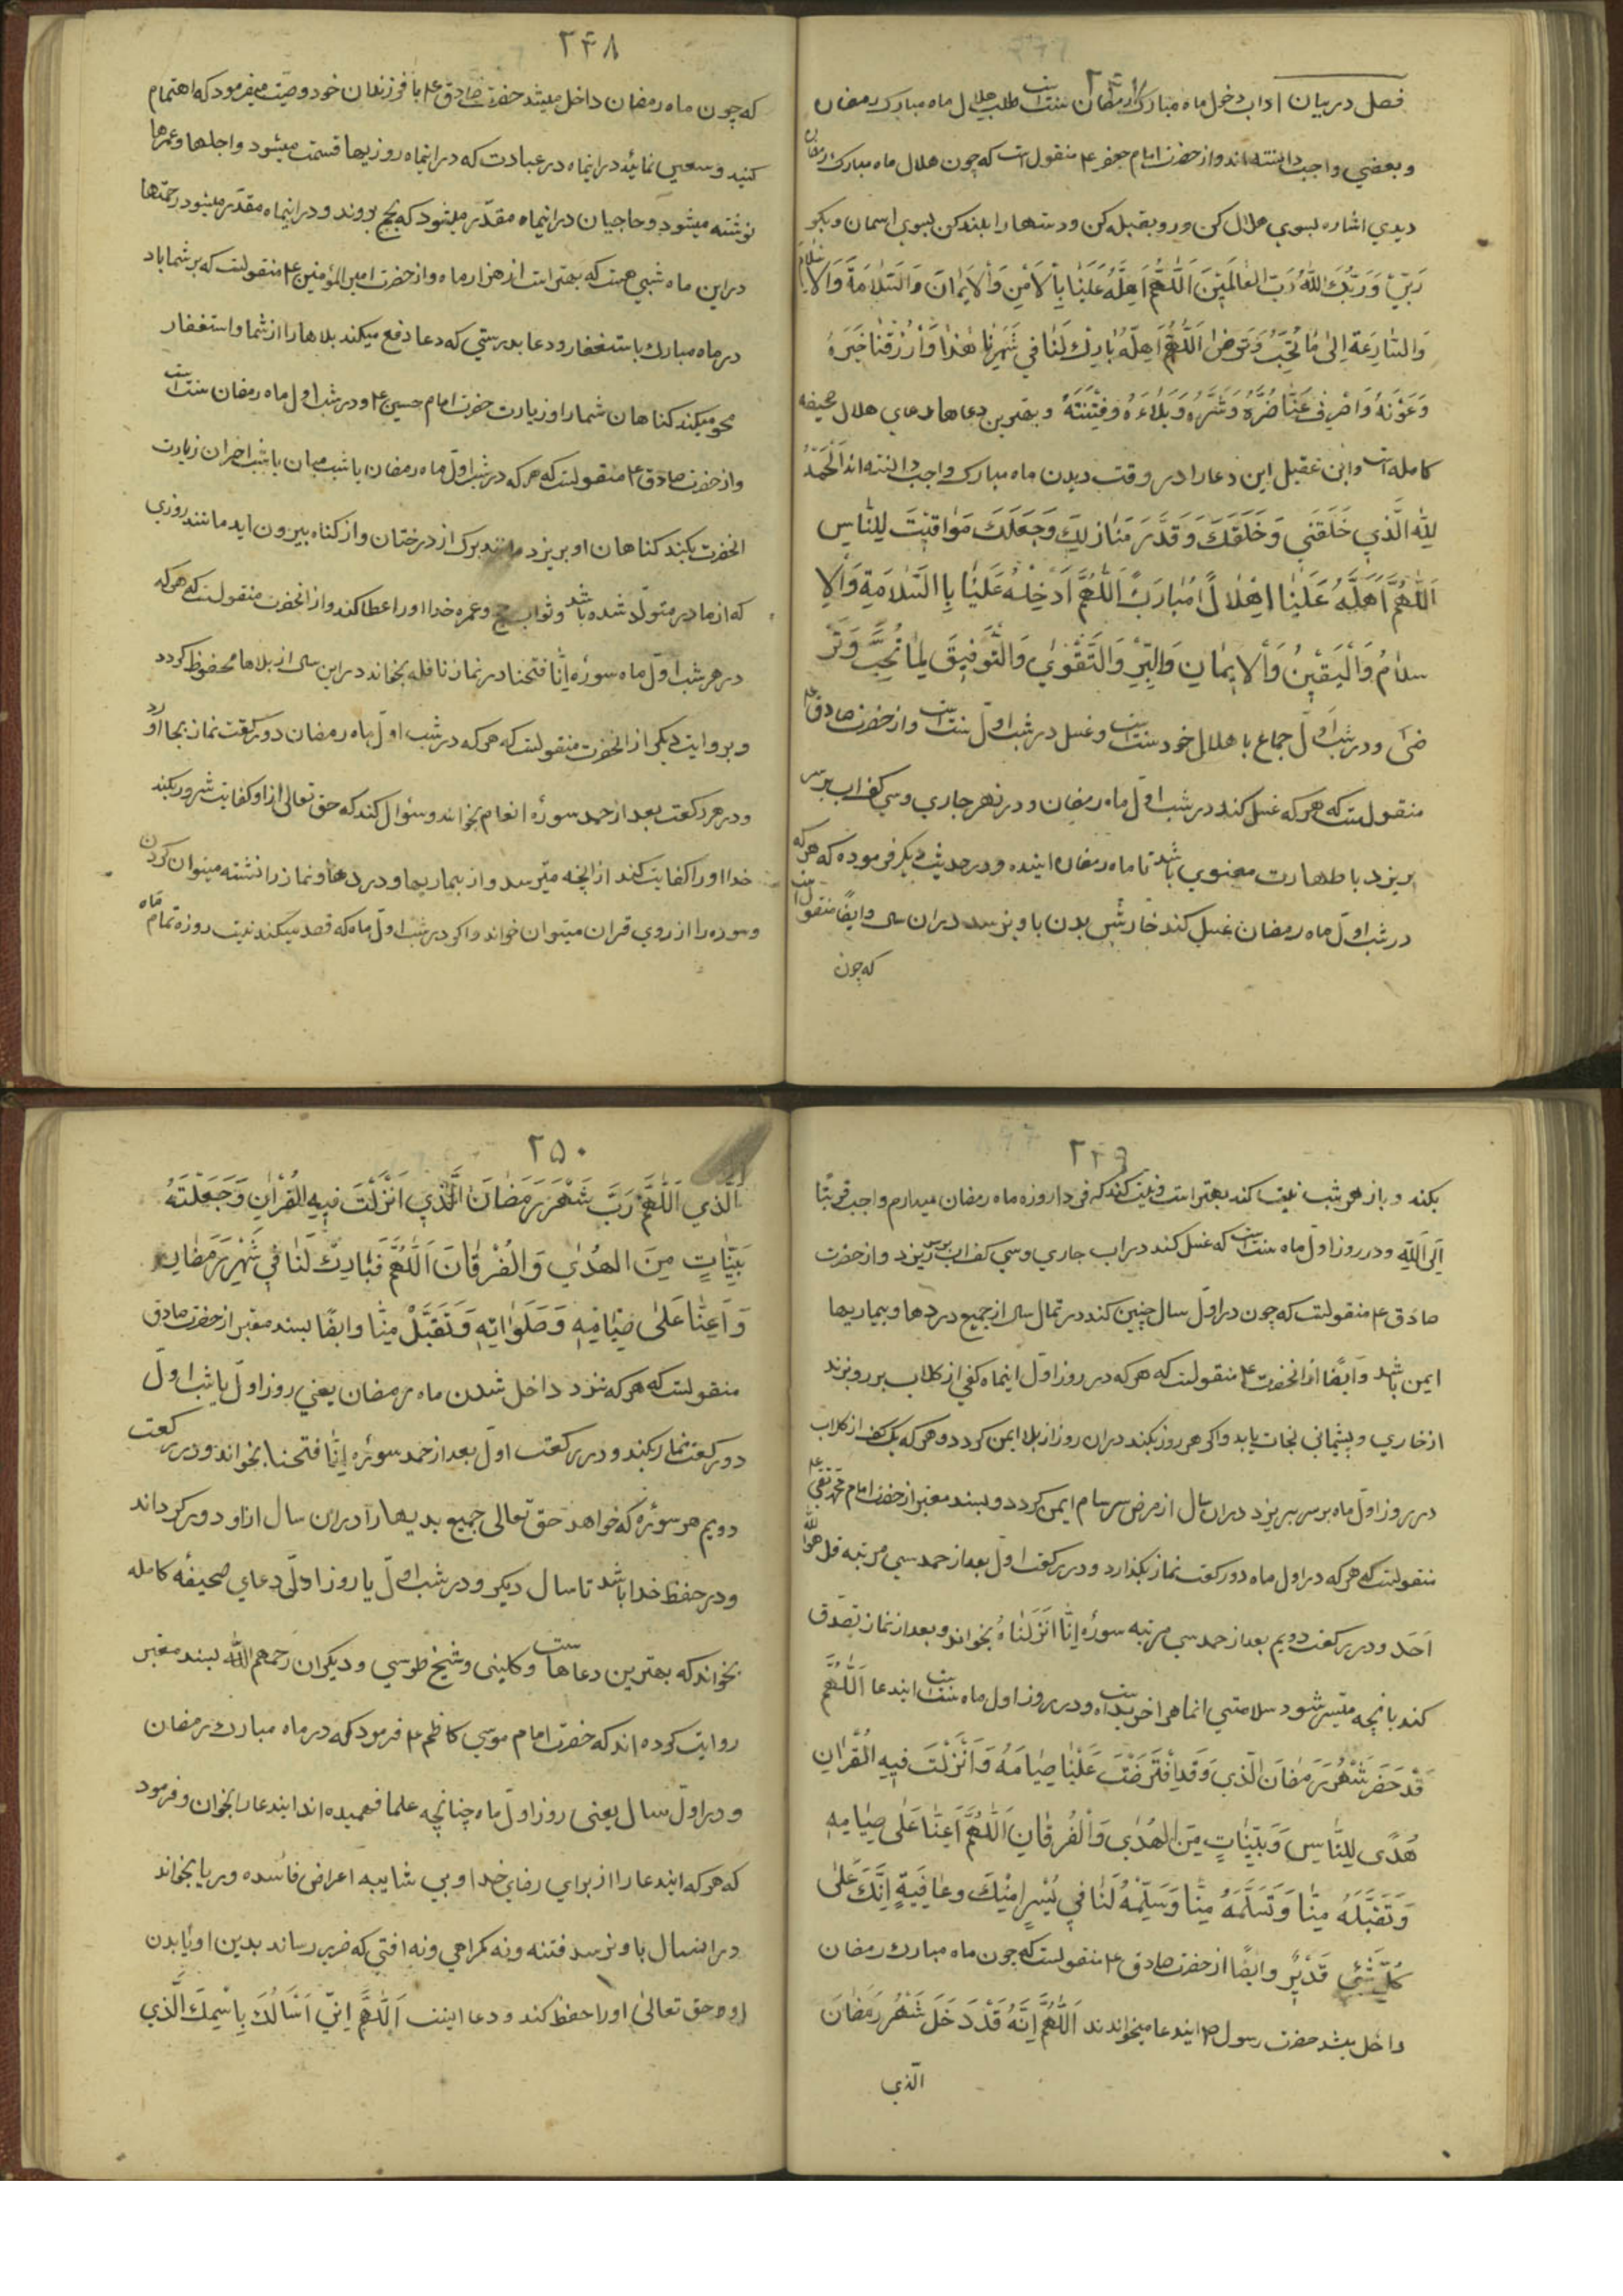 ۲۴۷
فصل در بیان اداب دخول ماه مبارک رمضان سنت است طلب هلال ماه مبارک رمضان
و بعضی واجب دانسته اند و از حضرت امام جعفر ع منقول است که چون هلال ماه مبارک رمضان
دیدی اشاره بسوی هلال مکن و رو بقبله کن و دستها را بلند کن بسوی اسمان و بکو
رَبّی وَ رَبُّكَ اللّٰهُ رَبُّ العٰالَمینَ اَللّٰهُمَّ اَهِلَّهُ عَلَیْنٰا بِالْاَمْنِ وَالْایمٰانَ وَالسَّلٰامَةِ وَالْاِسْلٰامِ
وَالْمُسٰارَعَةِ اِلیٰ مٰا تُحِبُّ وَتَرْضیٰ اَللّٰهُمَّ بٰارِكْ لَنٰا فی شَهْرِنٰا هٰذٰا وَارْزُقْنٰا خَیْرَهُ
وَعَوْنَهُ وَاصْرِفْ عَنّٰا ضُرَّهُ وَشَرَّهُ وَبَلٰاءَهُ وَفِتْنَتَهُ و بهترین دعاها دعای هلال صحیفه
کامله است و ابن عقیل این دعا را در وقت دیدن ماه مبارک واجب دانسته اند اَلْحَمْدُ
لِلّٰهِ الَّذی خَلَقَنی وَخَلَقَكَ وَقَدَّرَ مَنٰازِلِكَ وَجَعَلَكَ مَوٰاقیتَ لِلنّٰاسِ
اَللّٰهُمَّ اَهِلَّهُ عَلَیْنٰا اِهْلٰالًا مُبٰارَكًا اَللّٰهُمَّ اَدْخِلْهُ عَلَیْنٰا بِاالسَّلٰامَةِ وَالْاِ
سلٰامُ وَالْیَقینُ وَالْایمٰانِ وَالْبِرِّ وَالتَّقْویٰ وَالتَّوْفیقَ لِمٰا تُحِبُّ وَتَرْ
ضیٰ و در شب اول جماع با هلال خود سنت است و غسل در شب اول سنت است و از حضرت صادق ع
منقولست که هر که غسل کند در شب اول ماه رمضان و در نهر جاری و سی کف اب بر سر
بریزد با طهارت معنوی باشد تا ماه رمضان اینده و در حدیث دیکر فرموده که هر که
در شب اول ماه رمضان غسل کند خارش بدن باو نرسد در ان سال و ایضًا منقول است
که چون
۲۴۸
که چون ماه رمضان داخل میشد حضرت صادق ع با فرزندان خود وصیت میفرمود که اهتمام
کنید و سعی نمائید در اینماه در عبادت که در اینماه روزیها قسمت میشود و اجلها و عمرها
نوشته میشود و حاجیان در اینماه مقدّر میشود که بحج بروند و در اینماه مقدّر میشود رحمتها
در این ماه شبی هست که بهتر است از هزار ماه و از حضرت امیر المؤمنین ع منقولست که بر شما باد
در ماه مبارک باستغفار و دعا بدرستی که دعا دفع میکند بلاها را از شما و استغفار
محو میکند کناهان شما را و زیارت حضرت امام حسین ع و در شب اول ماه رمضان سنت است
و از حضرت صادق ع منقولست که هر که در شب اول ماه رمضان یا شب میان یا شب اخر ان زیارت
انحضرت بکند کناهان او بریزد مانند برک از درختان و از کناه بیرون اید مانند روزی
که از مادر متولد شده باشد و ثواب حج و عمره خدا او را عطا کند و از انحضرت منقولست که هر که
در هر شب اول ماه سورهٔ اِنّٰا فتحنا در نماز نافله بخواند در این سال از بلاها محفوظ کردد
و بروایت دیکر از انحضرت منقولست که هر که در شب اول ماه رمضان دو رکعت نماز بجا اورد
و در هر رکعت بعد از حمد سورهٔ انعام بخواند و سئوال کند که حق تعالی از او کفایت شرور بکند
خدا او را کفایت کند از انچه میترسد و از بیماریها و دردها و نماز را نشسته میتوان کردن
و سوره را از روی قران میتوان خواند و اکر در شب اول ماه که قصد میکند نیت روزه تمام ماه
۲۴۹
بکند و باز هر شب نیت کند بهتر است و نیت کند که فردا روزه ماه رمضان میدارم واجب قربتًا
اِلَی اللّٰهِ و در روز اول ماه سنت است که غسل کند در اب جاری و سی کف اب بر سر ریزد و از حضرت
صادق ع منقولست که چون در اول سال چنین کند در تمام سال از جمیع دردها و بیماریها
ایمن باشد و ایضًا از انحضرت ع منقولست که هر که در روز اول اینماه کفی از کلاب بر رو بزند
از خاری و پشیمانی نجات یابد و اکر هر روز بکند در ان روز از بلا ایمن کردد و هر که یک کف از کلاب
در روز اول ماه بر سر بریزد در ان سال از مرض سرسام ایمن کردد و بسند معتبر از حضرت امام محمد تقی ع
منقولست که هر که در اول ماه دو رکعت نماز بکذارد و در رکعت اول بعد از حمد سی مرتبه قل هو الله
اَحَد و در رکعت دویم بعد از حمد سی مرتبه سورهٔ اِنّٰا اَنْزَلْنٰاهُ بخواند و بعد از نماز تصدّق
کند بانچه میسر شود سلامتی انماه را خریده است و در روز اول ماه سنت است ایندعا اَللّٰهُمَّ
قَدْ حَضَرَ شَهْرُ رَمَضٰانَ الَّذی وَقَدِ افْتَرَضْتَ عَلَیْنٰا صِیٰامَهُ وَاَنْزَلْتَ فیهِ الْقُرْاٰنِ
هُدًی لِلنّٰاسِ وَبَیِّنٰاتٍ مِنَ الْهُدٰی وَالْفُرْقٰانِ اَللّٰهُمَّ اَعِنّٰا عَلٰی صِیٰامِهِ
وَتَقَبَّلْهُ مِنّٰا وَتَسَلَّمْهُ مِنّٰا وَسَلِّمْهُ لَنٰا فی یُسْرٍ مِنْكَ وعٰافِیَةٍ اِنَّكَ عَلٰی
كُلِّ شَیْءٍ قَدیرٌ و ایضًا از حضرت صادق ع منقولست که چون ماه مبارک رمضان
داخل میشد حضرت رسول ص ایندعا میخواندند اَللّٰهُمَّ اِنَّهُ قَدْ دَخَلَ شَهْرُ رَمَضٰانَ
الّذی
۲۵۰
اَلَّذی اَللّٰهُمَّ رَبَّ شَهْرَ رَمَضٰانَ الَّذی اَنْزَلْتَ فیهِ القُرْاٰنِ وَجَعَلْتَهُ
بَیِّنٰاتٍ مِنَ الهُدٰی وَالْفُرْقٰانَ اَللّٰهُمَّ فَبٰارِكْ لَنٰا فی شَهْرِ رَمَضٰانِ
وَاَعِنّٰا عَلٰی صِیٰامِهِ وَصَلَوٰاتِهِ وَتَقَبَّلْ مِنّٰا و ایضًا بسند معتبر از حضرت صادق
منقولست که هر که نزد داخل شدن ماه رمضان یعنی روز اول یا شب اول
دو رکعت نماز بکند و در رکعت اول بعد از حمد سورهٔ اِنّٰا فتحنا بخواند و در رکعت
دویم هر سورهٔ که خواهد حق تعالی جمیع بدیها را در این سال از او دور کرداند
و در حفظ خدا باشد تا سال دیکر و در شب اول یا روز اول دعای صحیفهٔ کامله
بخواند که بهترین دعاها است و کلینی و شیخ طوسی و دیکران رحمهم اللّٰه بسند معتبر
روایت کرده اند که حضرت امام موسی کاظم ع فرمود که در ماه مبارک رمضان
و در اول سال یعنی روز اول ماه چنانچه علما فهمیده اند ایندعا را بخوان و فرمود
که هر که ایندعا را از برای رضای خدا و بی شایبه اعراض فاسده و ریا بخواند
در انسال باو نرسد فتنه و نه کمراهی و نه افتی که ضرر رساند بدین او یا بدن
او و حق تعالیٰ او را حفظ کند و دعا اینست اَللّٰهُمَّ اِنّی اَسْاَلُكَ بِاسْمِكَ الَّذی